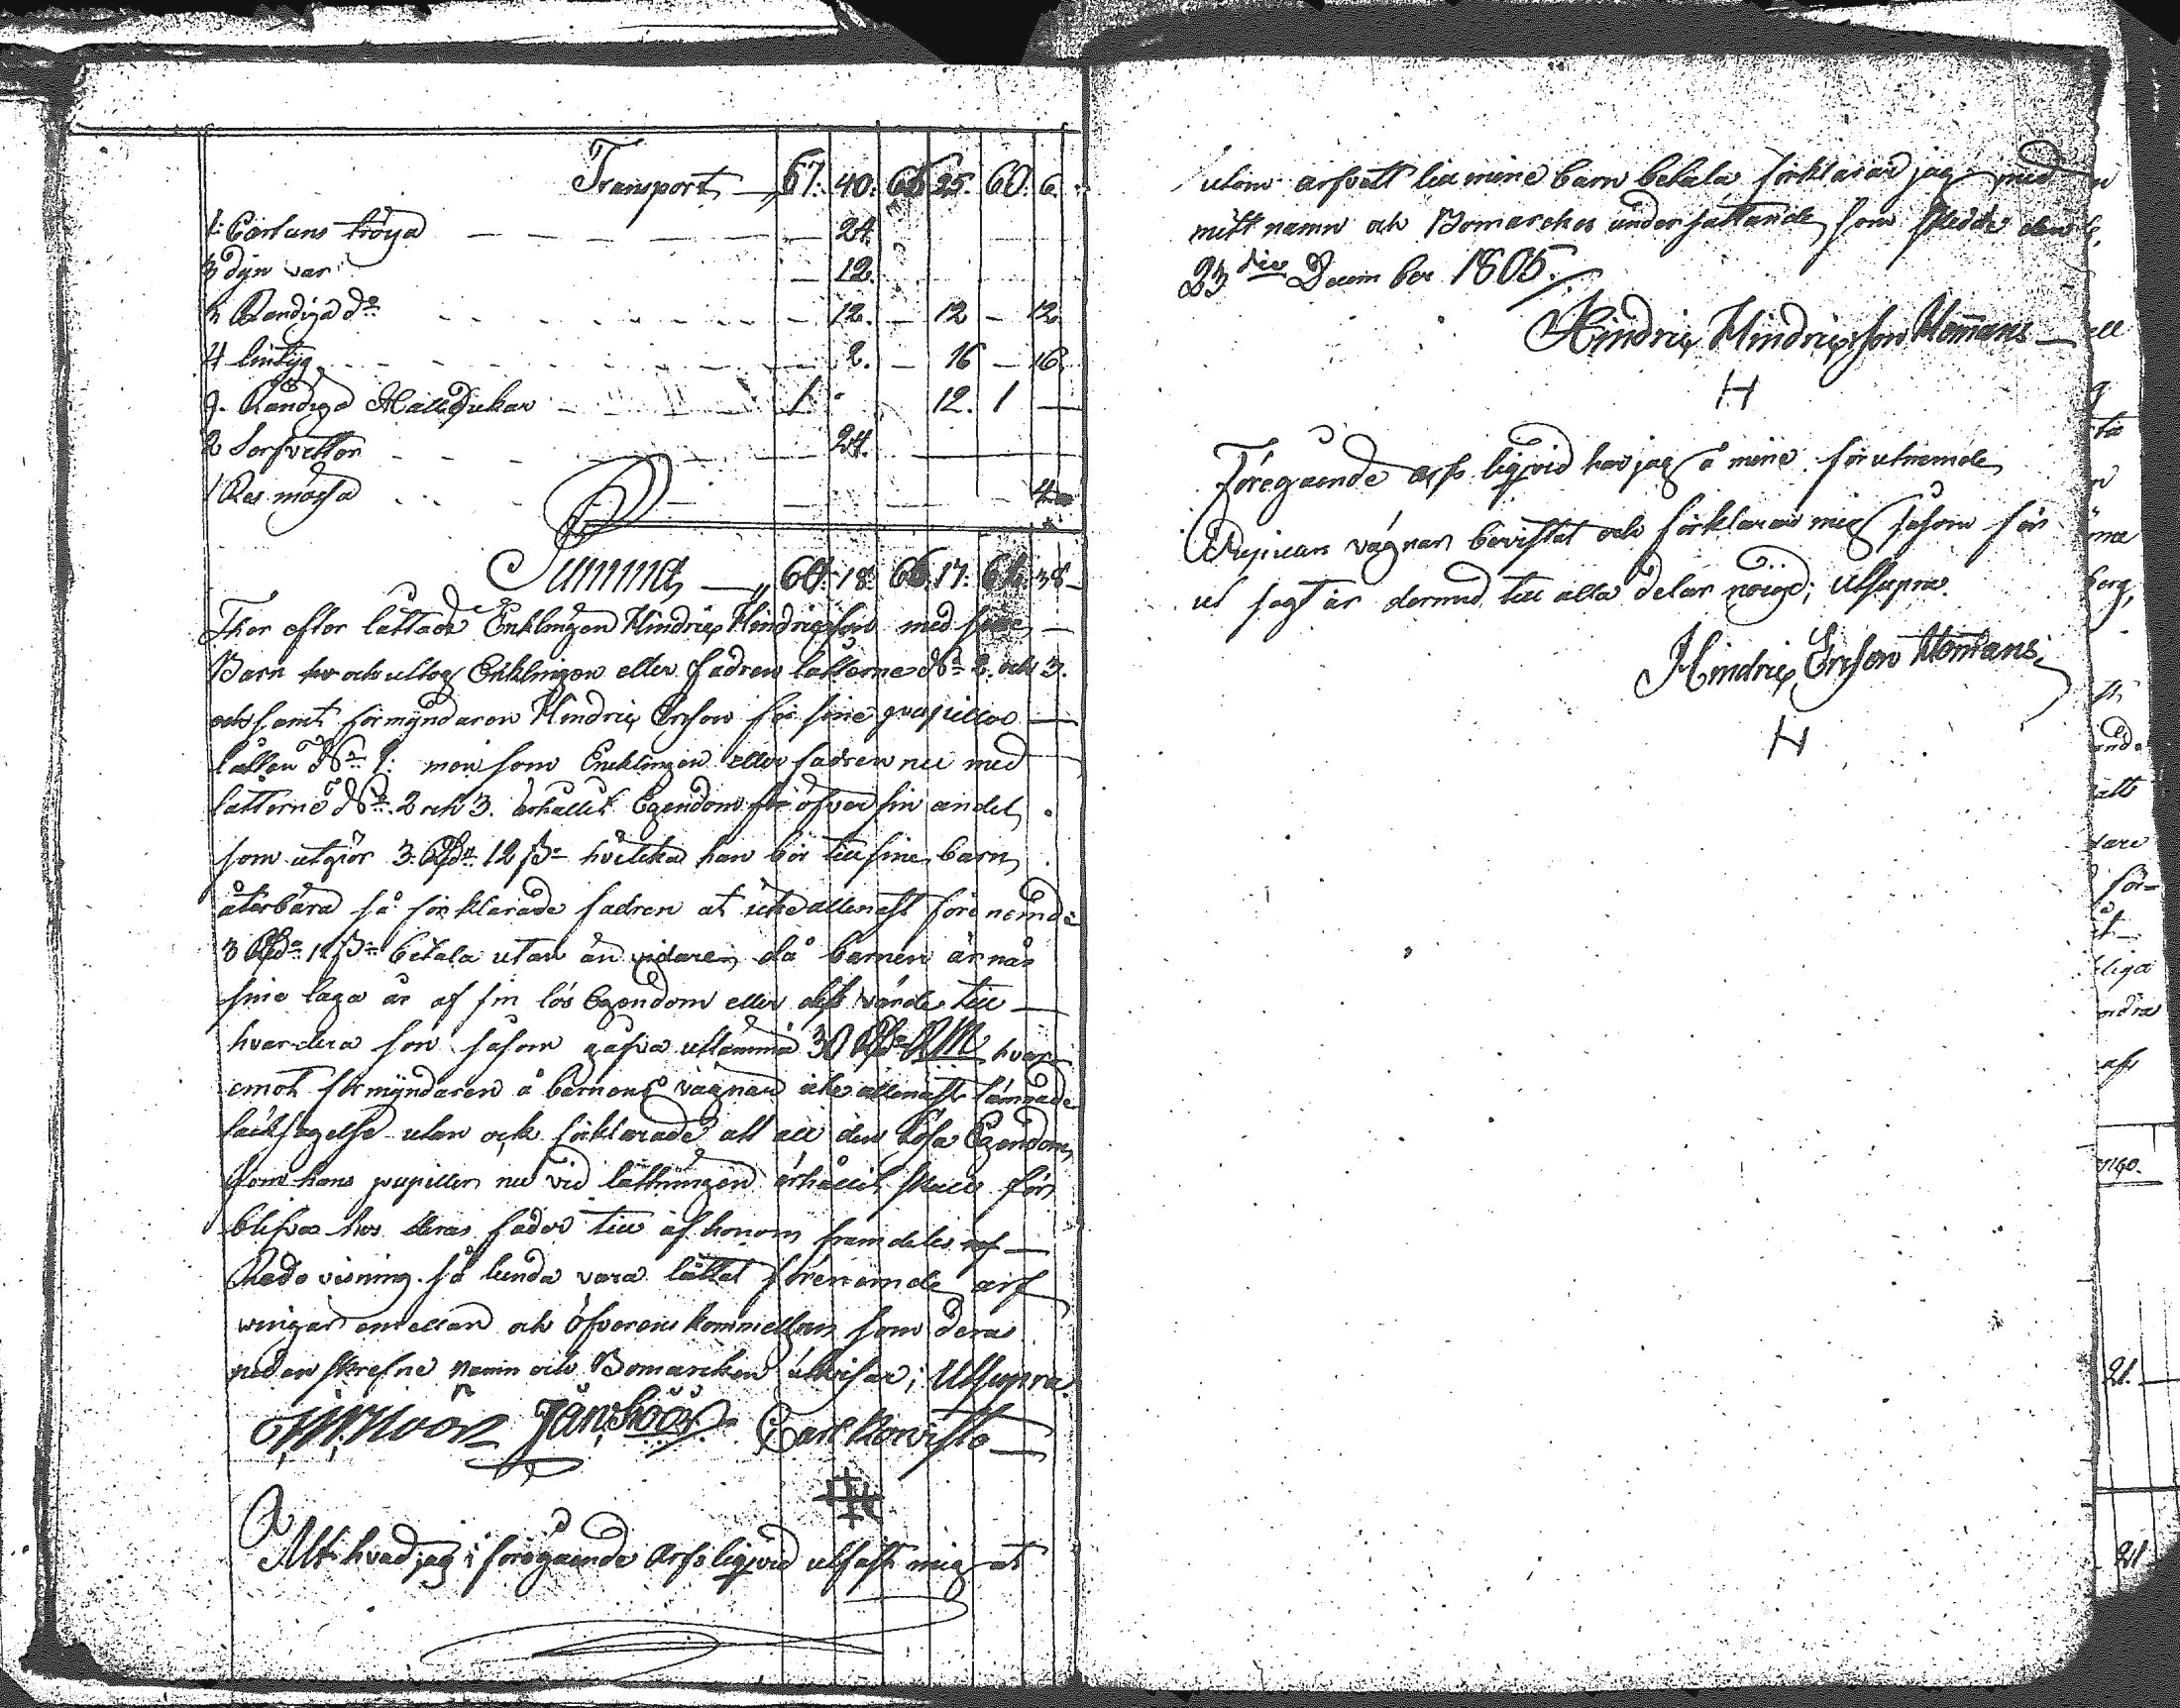 Transport 67. 40. 66 25. 60. 6.
1: Cartuns tröya 24.
3 dyn var 12.
2 Randiga do 12. 12 12.
4 lintyg 2. 16 16.
9. Randiga Halsdukar 1 12. 1
2 Servetter 24.
1 Res mössa 4
Summa 69. 18. 66. 17. 62. 38
Ther efter lattade Enklingen Hindric Hindricson med sine
Barn och uttog Enklingen eller fadren lotterne No 2. och 3.
och samt förmyndaren Hindric Ericson för sine pupiller
lotten No 1: men som Encklingen eller fadren nu med
lotterne No 2 och 3. erhållit Egendom för öfver sin andel
som utgiör 3. Rd 12 s hvilka han bör till sine barn
återbära så förklarade fadren at icke allenast förenemde
3 Rd 12 s betala utan än vidare då barnen ärnå
sine laga år af sin lös Egendom eller dess värde till
hvardera son såsom gåfva utlämna 30 Rd RM hvar
emot förmyndaren å barnens vägnar icke allenast lämnade
tacksägelse utan ock förklarade att all den lösa Egendom
som hans pupiller nu vid lottningen erhållit skall för
blifva hos deras fader till af honom framdeles
Redovisning. så lunda vara lottat förenemde arf
wingar emellan och öfverens kommellsen som deras
nedanskrefne namn och Bomärcken utvisar; Utsupra.
Carl Kovisto
Alt hvad jag i föregående Arfs liqvid utfäst mig at
utom arfvett till mine barn betala förklarar jag med
mitt namn och Bomärckes undersättande som skedde den
23 die December 1805.
Hindric Hindricsson Homans
H
Föregående arfs liqvid har jag å mine förutnemde
Pupillers vägnar bevistat och förklarar mig såsom för
ut sagt är dermed till alla delar nöigd; Utsupra.
Hindric Ericson Homans
H